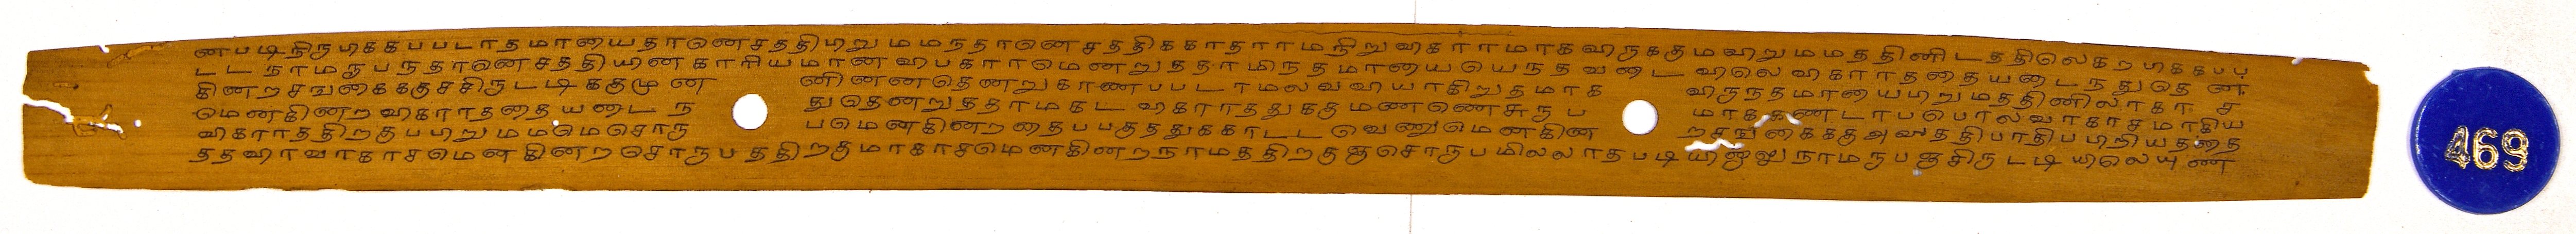 னபடிநிருபிககபபடாதமாயைதானெசததிபிறுமமநதானெசததிககாதாரமநிறுவிகாரமாகவிருககுமபிறுமமததினிடததிலெகறபிககபப
டடநாமரூபநதானெசததியினகாரியமானவிபகாரமெனறுததாமிநதமாயையெநதவடைவிலெவிகாரததையடைநதுதென
கினறசஙகைககுசசிருடடிககுமுன னினனதெனறுகாணபபடாமலவவியாகிறுதமாக விருநதமாயைபிறுமததினிலாகாச
மெனகினறவிகாரததையடைந துதெனறுததாமகடவிகாரததுககுமணணெசுருப மாககணடாபபொலவாகாசமாகிய
விகாரததிறகுபபிறுமமமெசொரு பமெனகினறதைபபகுததுககாடடவெணுமெனகின றசஙகைககுஅவுததிபாதிபபிறியததை
ததவிரவாகாசமெனகினறசொருபததிறகுமாகாசமெனகினறநாமததிறகுஞசொருபமிலலாதபடியிஞஞுநாமரூபஞசிருடடியிலெயுண
469